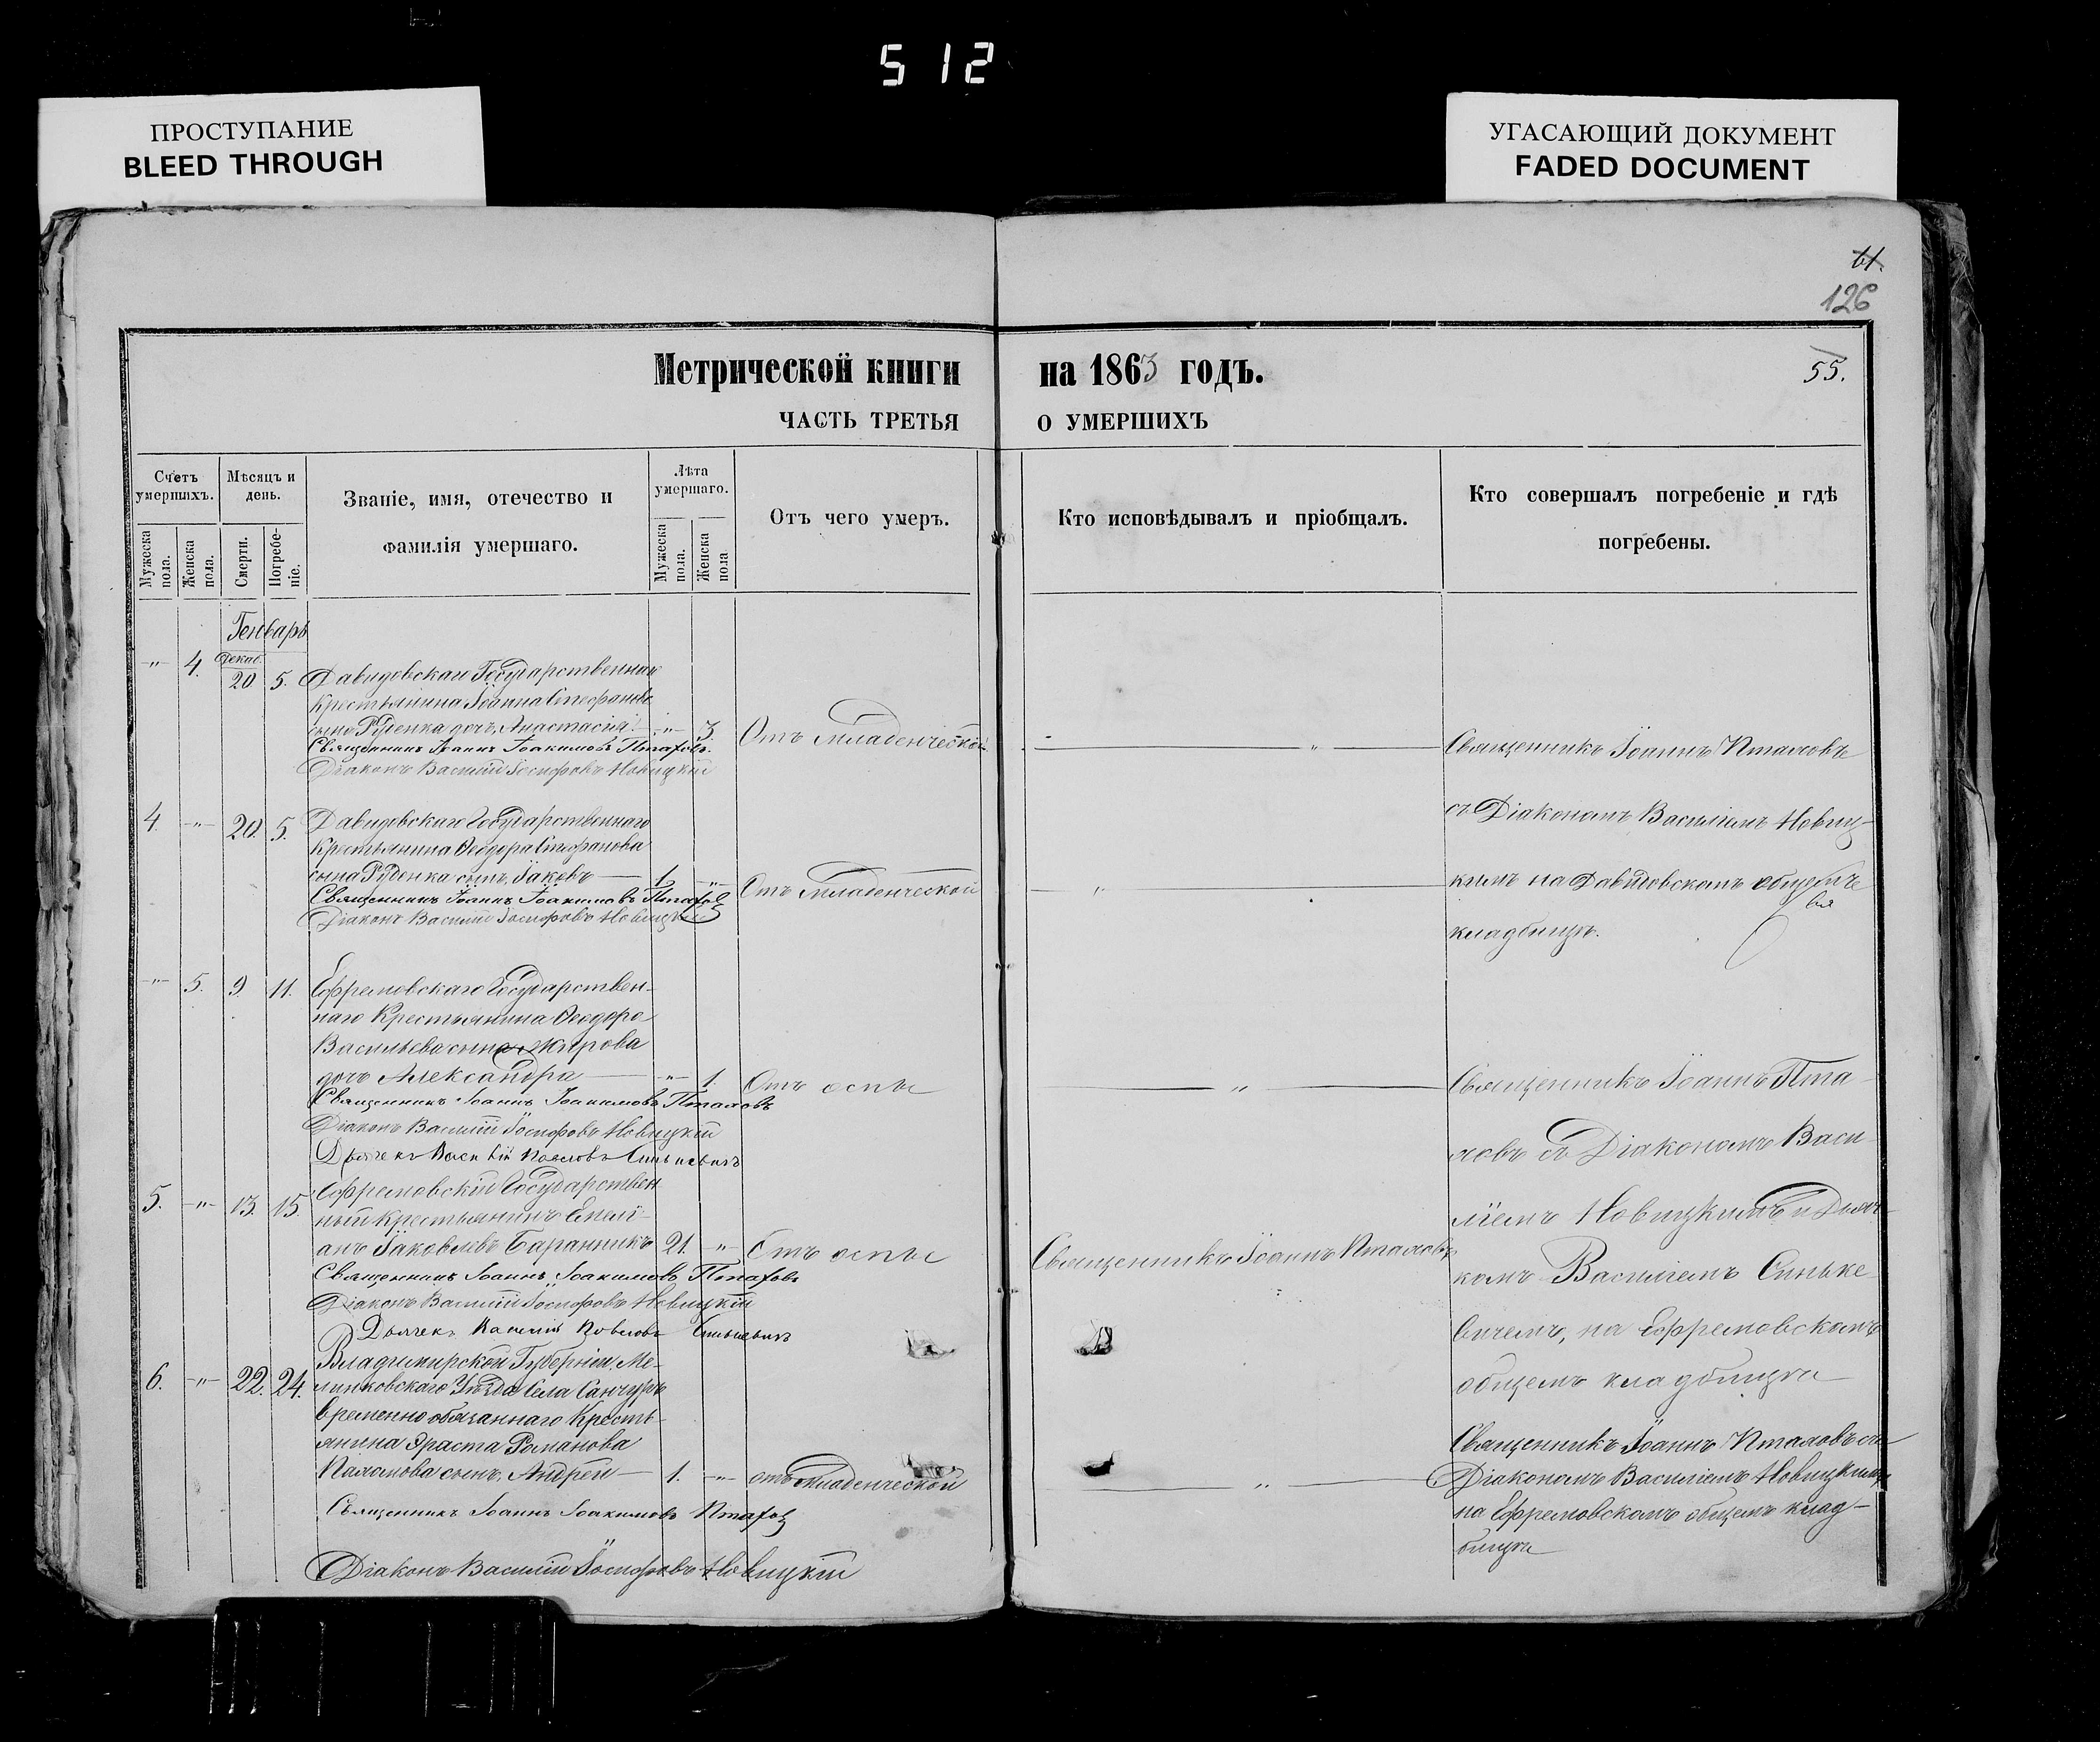 512
ПРОСТУПАНИЕ
BLEED THROUGH
УГАСАЮЩИЙ ДОКУМЕНТ
FADED DOCUMENT
61.
126
55.
Метрической книги на 1863 годъ.
ЧАСТЬ ТРЕТЬЯ О УМЕРШИХЪ
Счетъ умершихъ.
Мужеска пола.
Женска пола.
Мѣсяцъ и день.
Смерти.
Погребеніе.
Званіе, имя, отечество и
фамилія умершаго.
Лѣта умершаго.
Мужеска пола.
Женска пола
Отъ чего умеръ.
Кто исповѣдывалъ и пріобщалъ.
Кто совершалъ погребеніе и гдѣ
погребены.
Генварь
Декаб.
-"- 4. 20 5. Давидовскаго Государственнаго
крестьянина Іоанна Стефанова
сына Руденка дочь, Анастасія -"- 3 Отъ Младенческой
Священникъ Іоаннъ Іоакимовъ Птаховъ.
Діаконъ Василій Іосифовъ Новицкій
Священникъ Іоаннъ Птаховъ
съ Діакономъ Василіемъ Новиц-
кимъ на Давидовскомъ
кладбищѣ.
4. -"- 20. 5. Давидовскаго Государственнаго
Крестьянина Ѳеодора Стефанова
сына Руденка сынъ, Іаковъ 1. -"- Отъ Младенческой
Священникъ Іоаннъ Іоакимовъ Птахов
Діаконъ Василій Іосифовъ Новицкій
-"- 5. 9. 11. Ефремовскаго Государствен-
наго Крестьянина Ѳеодора
Васильева сына Жирова
дочь Александра -"- 1. Отъ оспы
Священникъ Іоаннъ Іоакимовъ Птаховъ
Діаконъ Василій Іосифовъ Новицкій
Дьячекъ Василій Павловъ Синькевичъ
Священникъ Іоаннъ Пта-
ховъ съ Діакономъ Васи-
ліемъ Новицкимъ и Дьяч-
комъ Василіемъ Синьке-
вичемъ, на Ефремовскомъ
общемъ кладбищѣ
5. -"- 13. 15. Ефремовскій Государствен
ный крестьянинъ
Іаковлевъ Баранникъ 21. -"- Отъ оспы
Священникъ Іоаннъ Птаховъ
Священникъ Іоаннъ Іоакимовъ Птаховъ
Діаконъ Василій Іосифовъ Новицкій
Дьячекъ Василій Павловъ Синькевичъ
6. -"- 22. 24. Владимирской Губерніи, Ме-
линковскаго Уѣзда Села
временно обязаннаго Кресть-
янина Эраста Романова
сынъ, Андрей 1. -"- отъ Младенческой
Священникъ Іоаннъ Іоакимовъ Птахов
Діаконъ Василій Іосифовъ Новицкій
Священникъ Іоаннъ Птаховъ съ
Діакономъ Василіемъ Новицкимъ
на Ефремовскомъ общемъ клад-
бищѣ